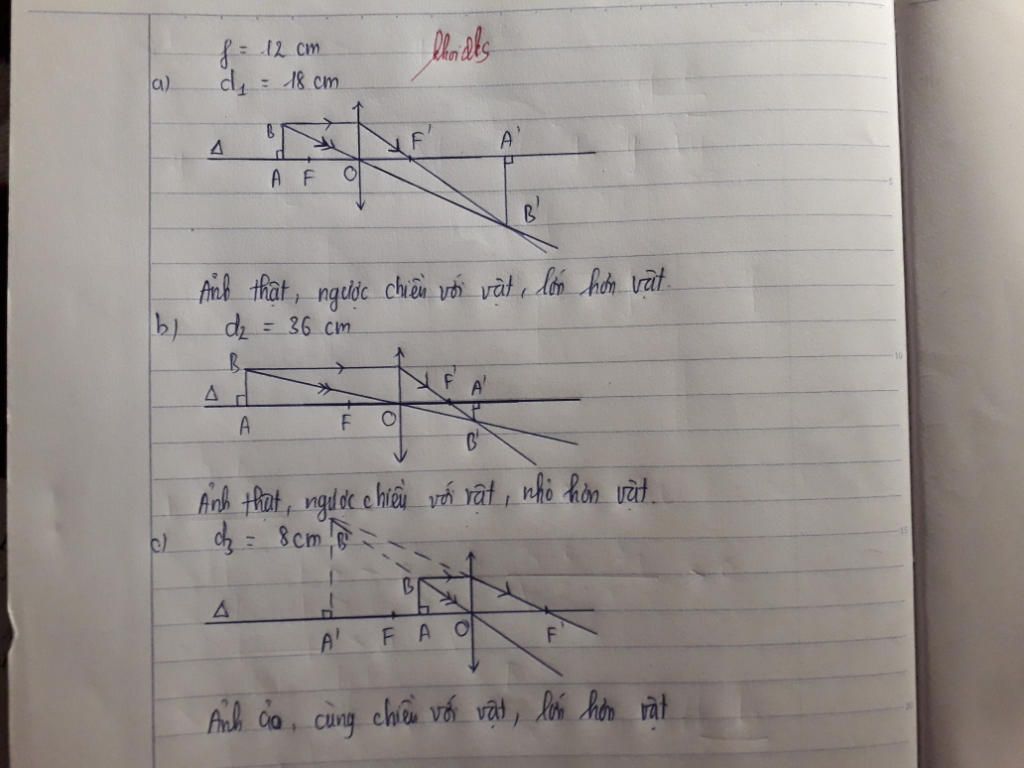 f = 12 cm khoidls
a) d₁ = 18 cm
B F' A'
Δ
A F O
B'
Ảnh thật, ngược chiều với vật, lớn hơn vật.
b) d₂ = 36 cm
B F' A'
Δ
A F O B'
Ảnh thật, ngược chiều với vật, nhỏ hơn vật.
c) d₃ = 8cm B'
B
Δ
A' F A O F'
Ảnh ảo, cùng chiều với vật, lớn hơn vật